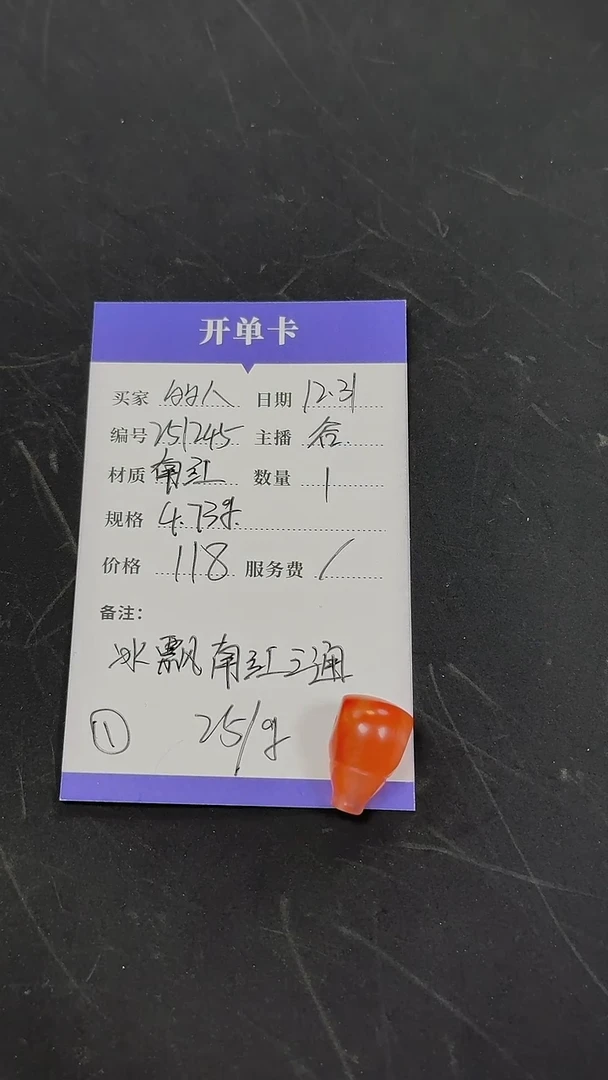 开单卡
买家 日期 12.31
编号 251245 主播 合
材质 南红 数量 1
规格 4.73g
价格 118 服务费 /
备注:
冰飘南红三通
① 25/g